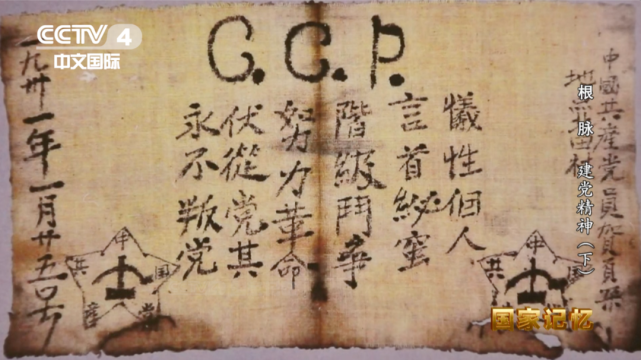 CCTV 4
中文国际
C.C.P.
中國共產党員賀頁朵
田村
犠性個人
言首秘蜜
階級鬥爭
努力革命
伏從党其
永不叛党
一九卅一年一月廿五
中國共產
中國共產
根 脉 建党精神（下）
国家记忆